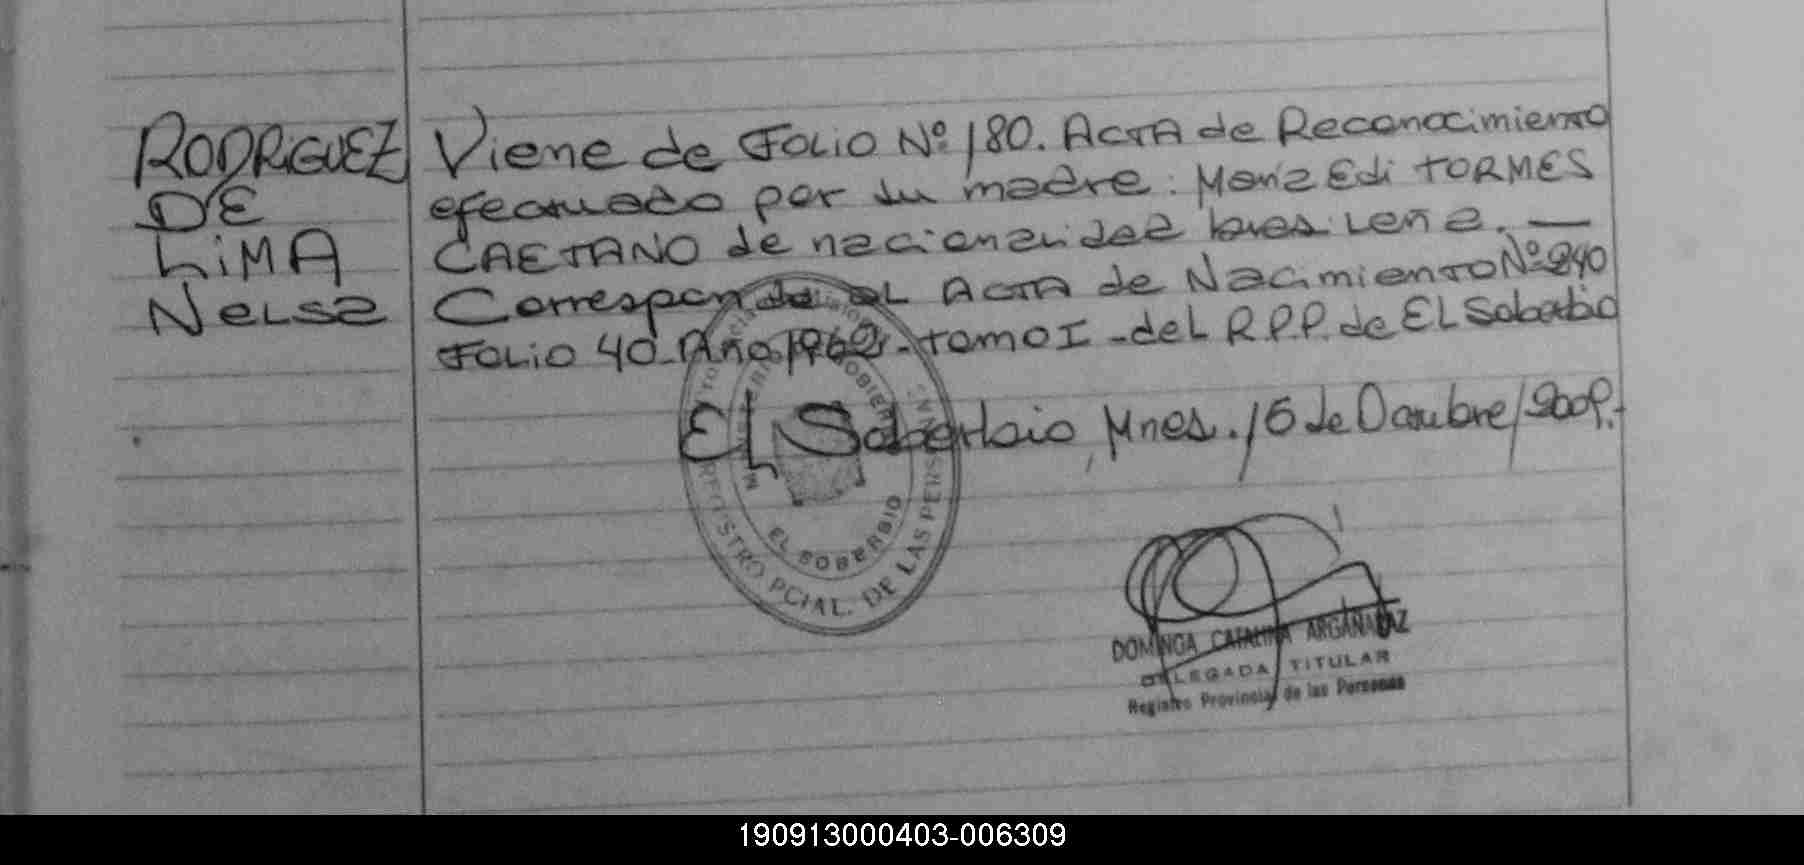 RODRIGUEZ
DE
LIMA
NELSA
Viene de Folio Nº 180. Acta de Reconocimiento
efectuado por su madre: Maria Edi TORMES
CAETANO de nacionalidad brasileña. —
Corresponde al Acta de Nacimiento Nº 240
Folio 40 Año 1962 - tomo I - del R.P.P. de El Soberbio
El Soberbio, Mnes. 16 de Octubre/2009.-
REGISTRO PCIAL. DE LAS PERSONAS
EL SOBERBIO
DOMINGA CATALINA ARGAÑARAZ
DELEGADA TITULAR
Registro Provincial de las Personas
190913000403-006309